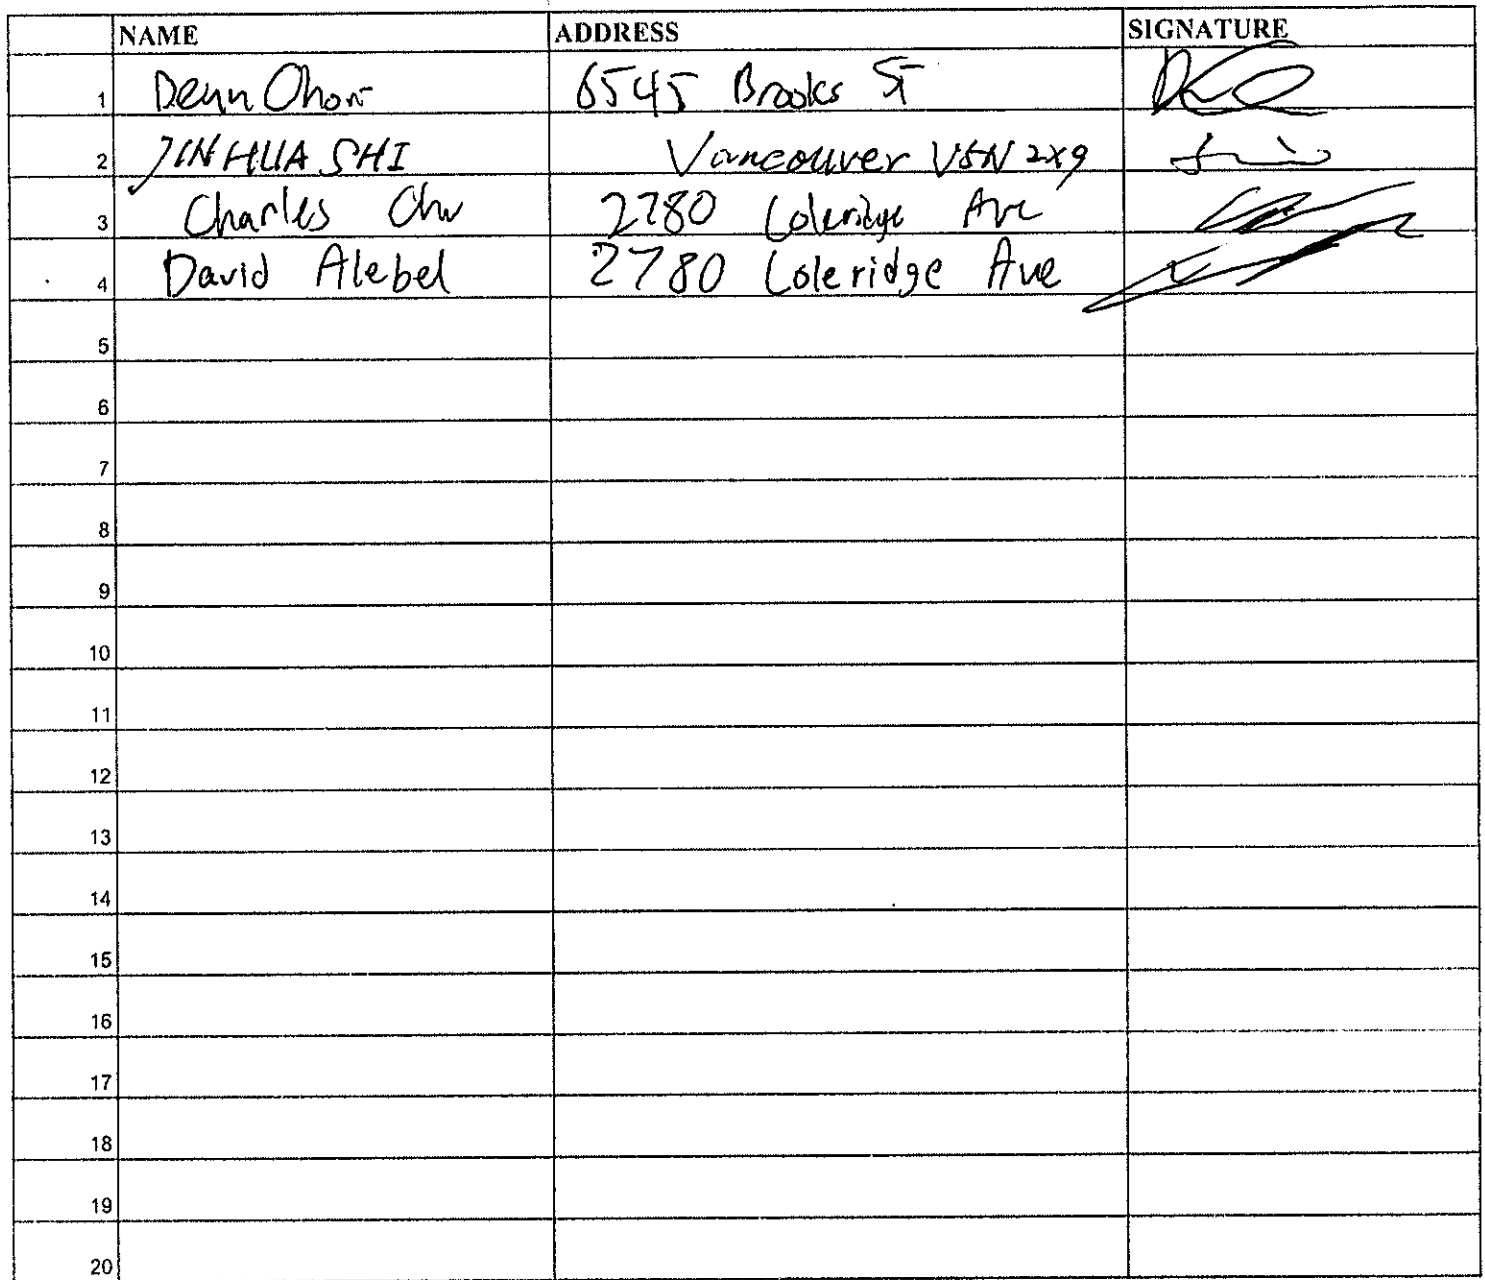 NAME ADDRESS SIGNATURE
1 6545 Brooks St
2 JINHUA SHI Vancouver V5N 2X9
3 Charles 2780 Coleridge Ave
4 David Alebel 2780 Coleridge Ave
5
6
7
8
9
10
11
12
13
14
15
16
17
18
19
20